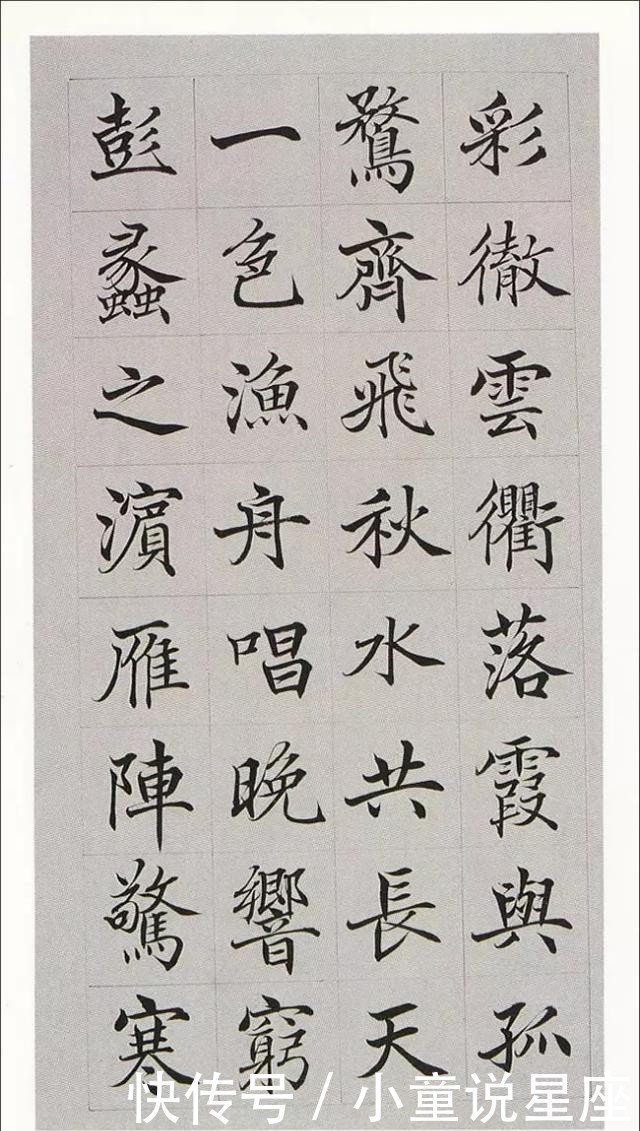 彩徹雲衢落霞與孤
鶩齊飛秋水共長天
一色漁舟唱晚響窮
彭蠡之濱雁陣驚寒
快传号/小童说星座